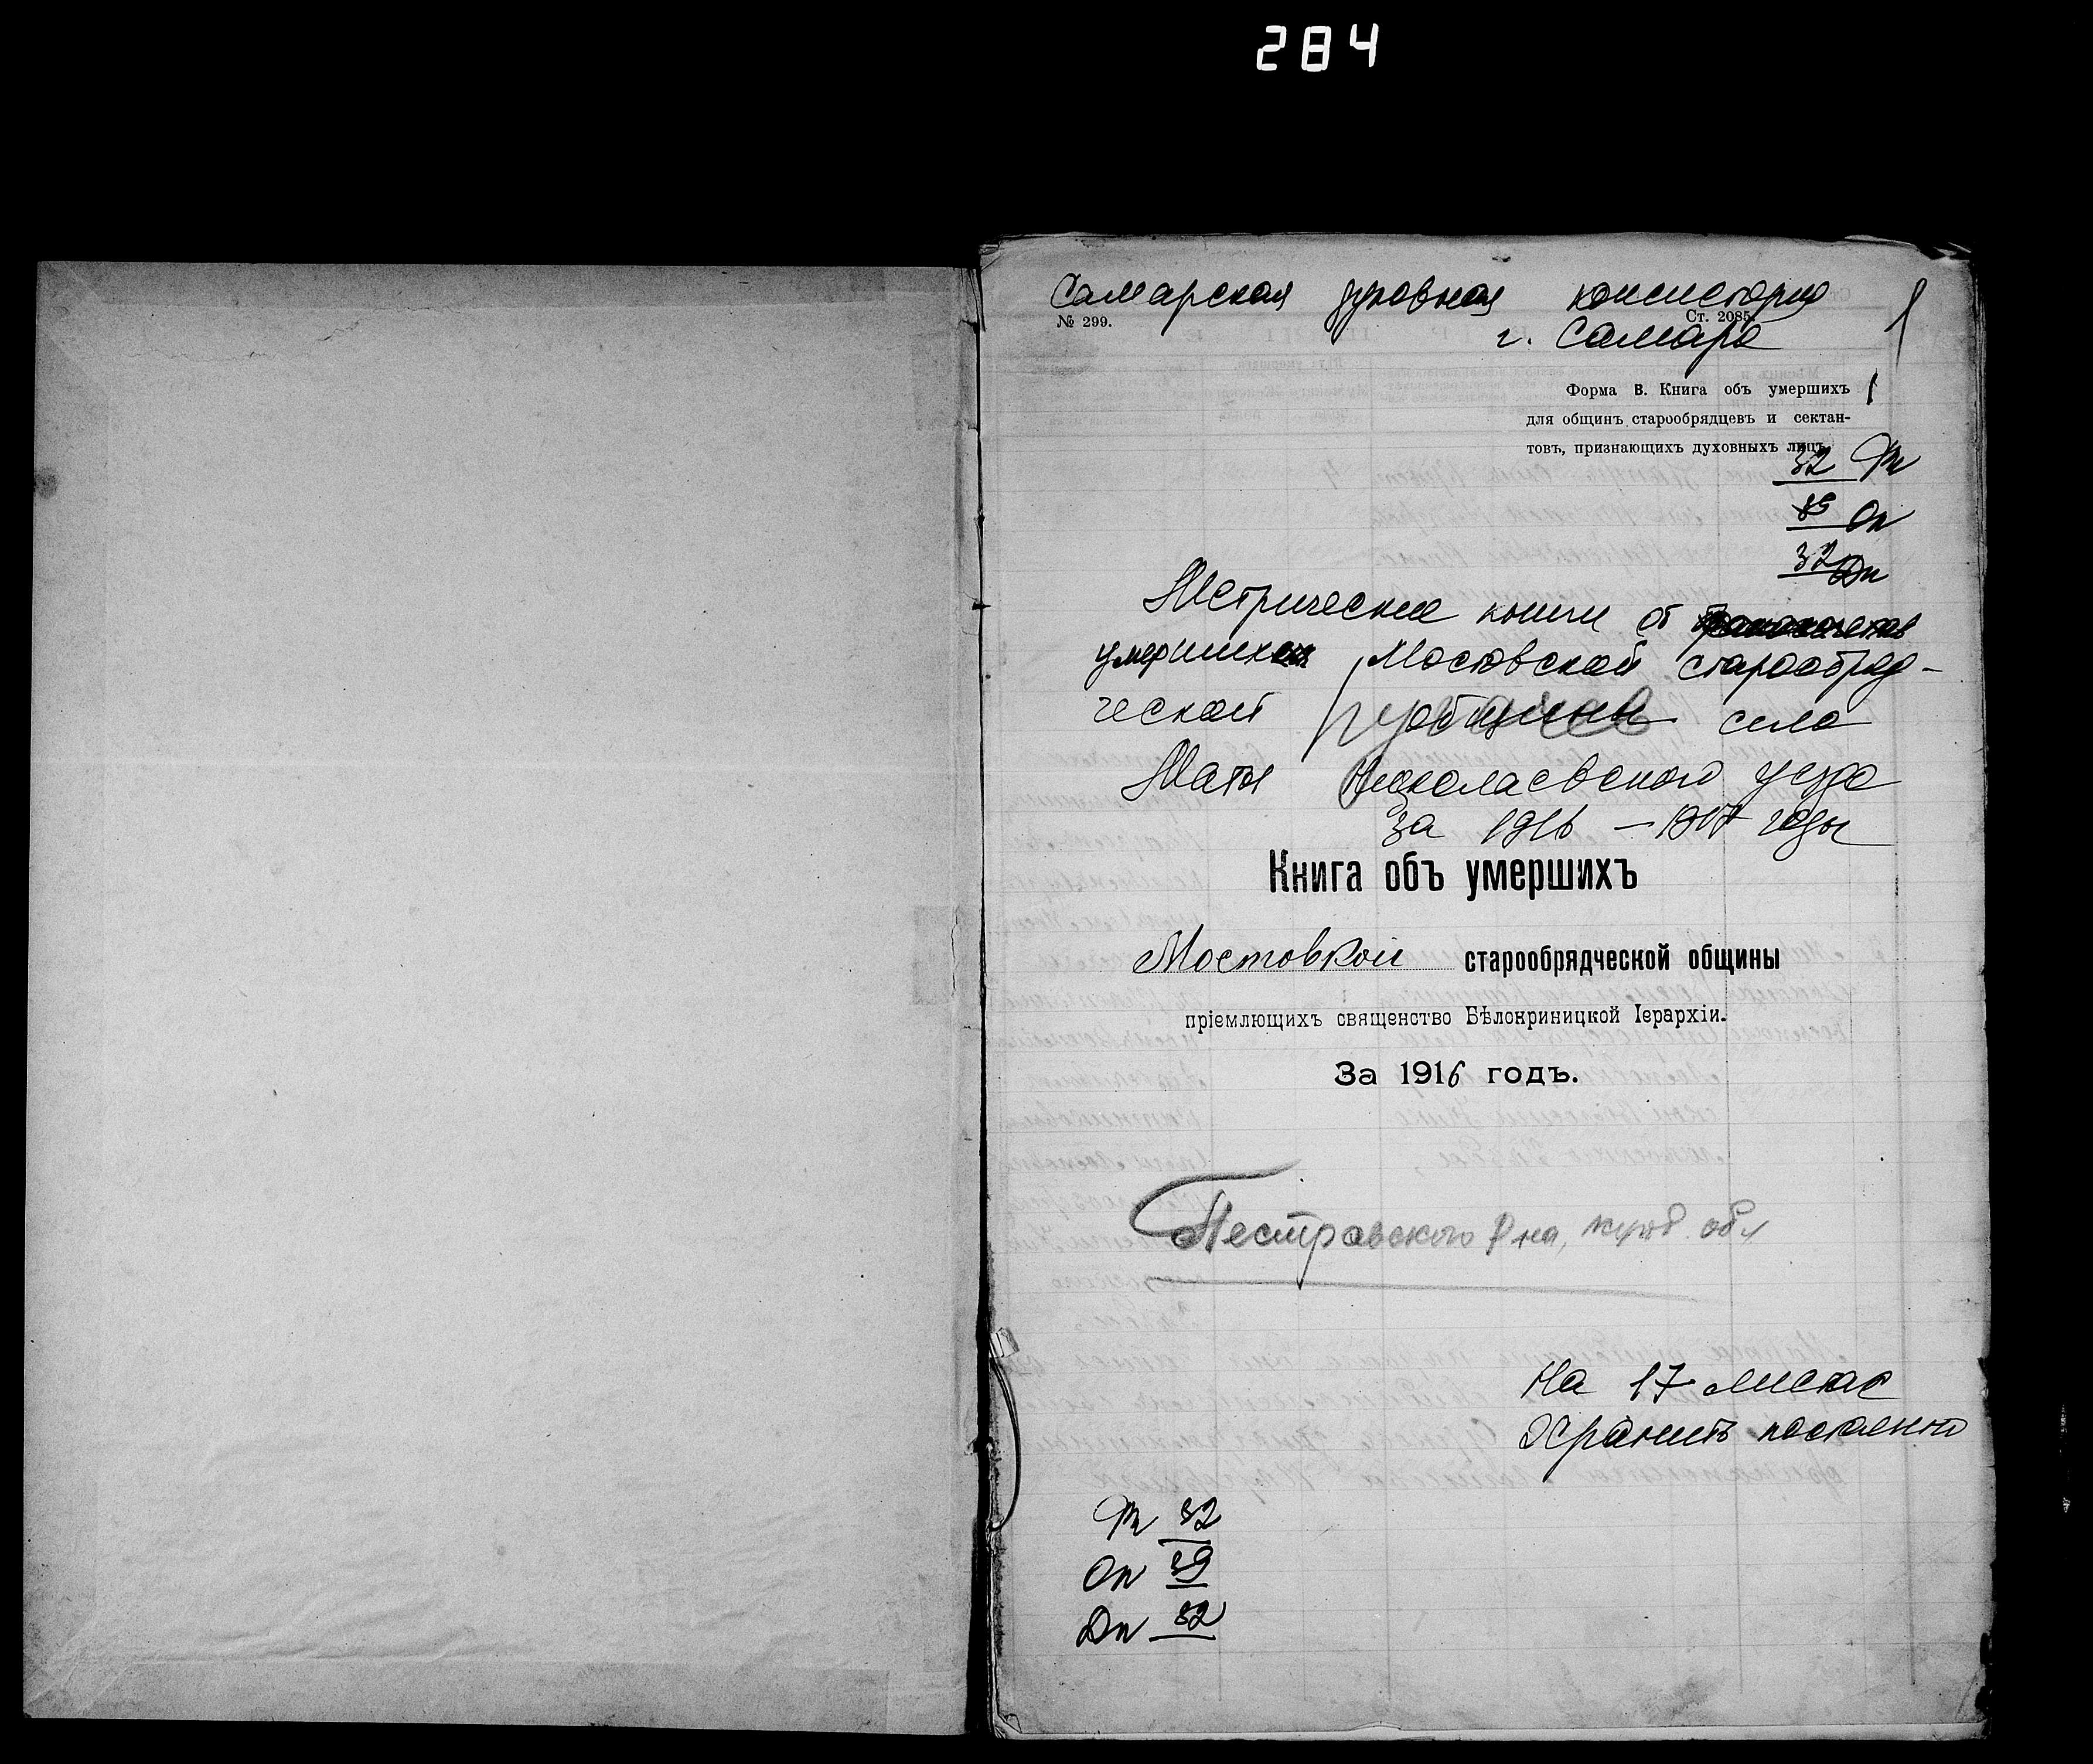 284
Самарская духовная консистория
№ 299.
Ст. 2085.
г. Самара
1
Форма В. Книга объ умершихъ
для общинъ старообрядцевъ и сектан-
товъ, признающихъ духовныхъ лицъ.
32 Фн
Оп
32 Дп
Метрические книги об
умерших Мостовской старообряд-
ческой общины села
Николаевского уезда
за 1916 – 1917 годы
Книга объ умершихъ
Мостовкой старообрядческой общины
пріемлющихъ священство Бѣлокриницкой Іерархіи.
За 1916 годъ.
Пестравского Р на, обл
На 17 листах
Хранить постоянно
Фн 32
Оп 39
Дп 32